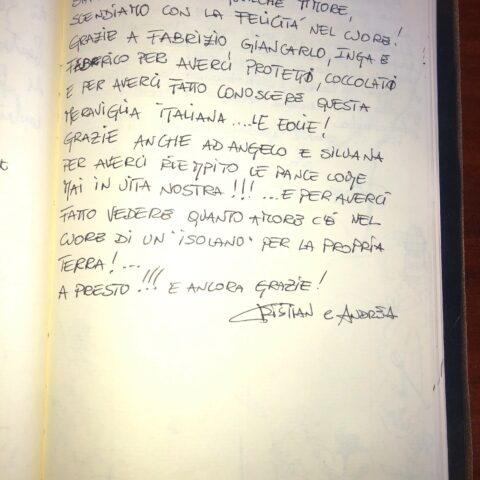 QUALCHE TIMORE,
SCENDIAMO CON LA FELICITÀ NEL CUORE!
GRAZIE A FABRIZIO GIANCARLO, INGA E
FEDERICO PER AVERCI PROTETTI, COCCOLATI
E PER AVERCI FATTO CONOSCERE QUESTA
MERAVIGLIA ITALIANA....LE EOLIE!
GRAZIE ANCHE AD ANGELO E SILVANA
PER AVERCI RIEMPITO LE PANCE COME
MAI IN VITA NOSTRA!!! ...E PER AVERCI
FATTO VEDERE QUANTO AMORE C'È NEL
CUORE DI UN "ISOLANO" PER LA PROPRIA
TERRA!...
A PRESTO!!! E ANCORA GRAZIE!
CRISTIAN e ANDREA